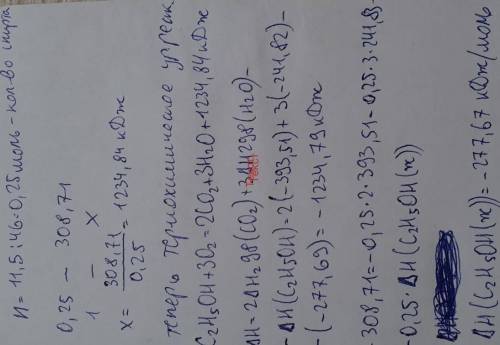 n = 11,5 : 46 = 0,25 моль - кол-во спирта
0,25 – 308,71
1 – x
x = 308,71 / 0,25 = 1234,84 кДж
теперь термохимическое
C₂H₅OH + 3O₂ = 2CO₂ + 3H₂O + 1234,84 кДж
ΔH = 2ΔH298(CO₂) + 3ΔH298(H₂O) –
– ΔH(C₂H₅OH) = 2(-393,51) + 3(-241,82) –
– (-277,69) = -1234,79 кДж
308,71 = -0,25·2·393,51 – 0,25·3·241,83 –
– 0,25·ΔH(C₂H₅OH(ж))
ΔH(C₂H₅OH(ж)) = -277,67 кДж/моль